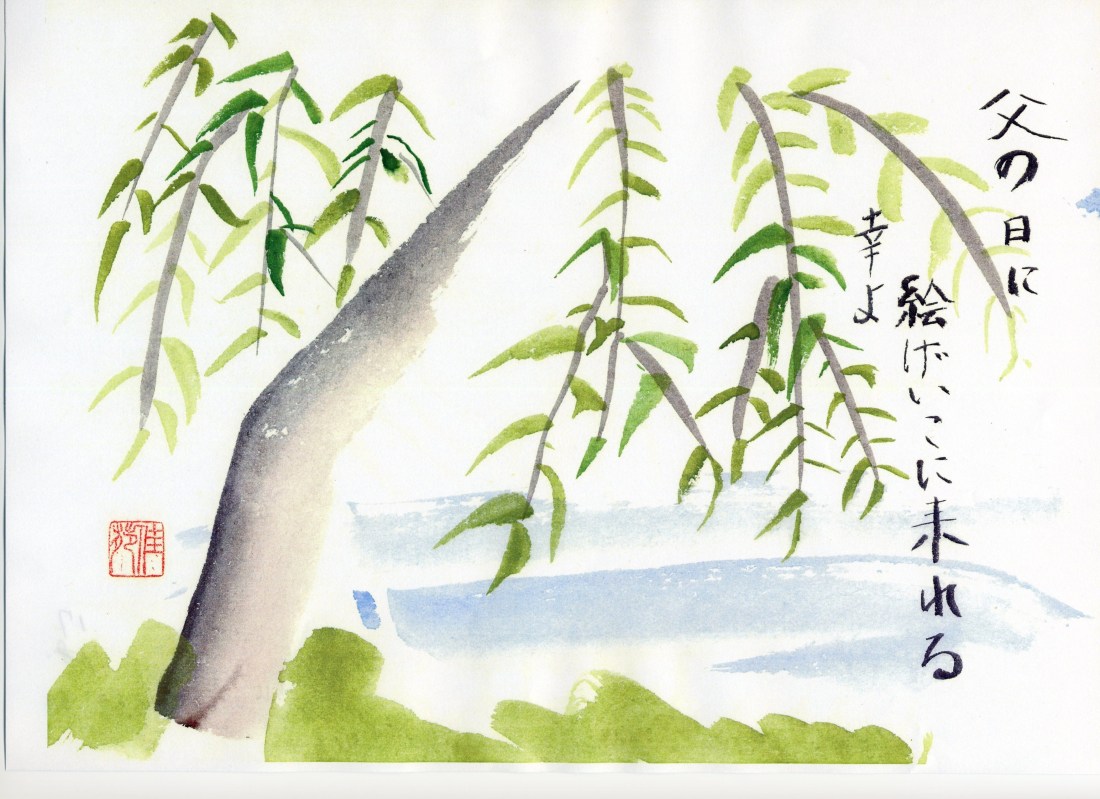 父の日に
絵げいこに来れる
幸よ